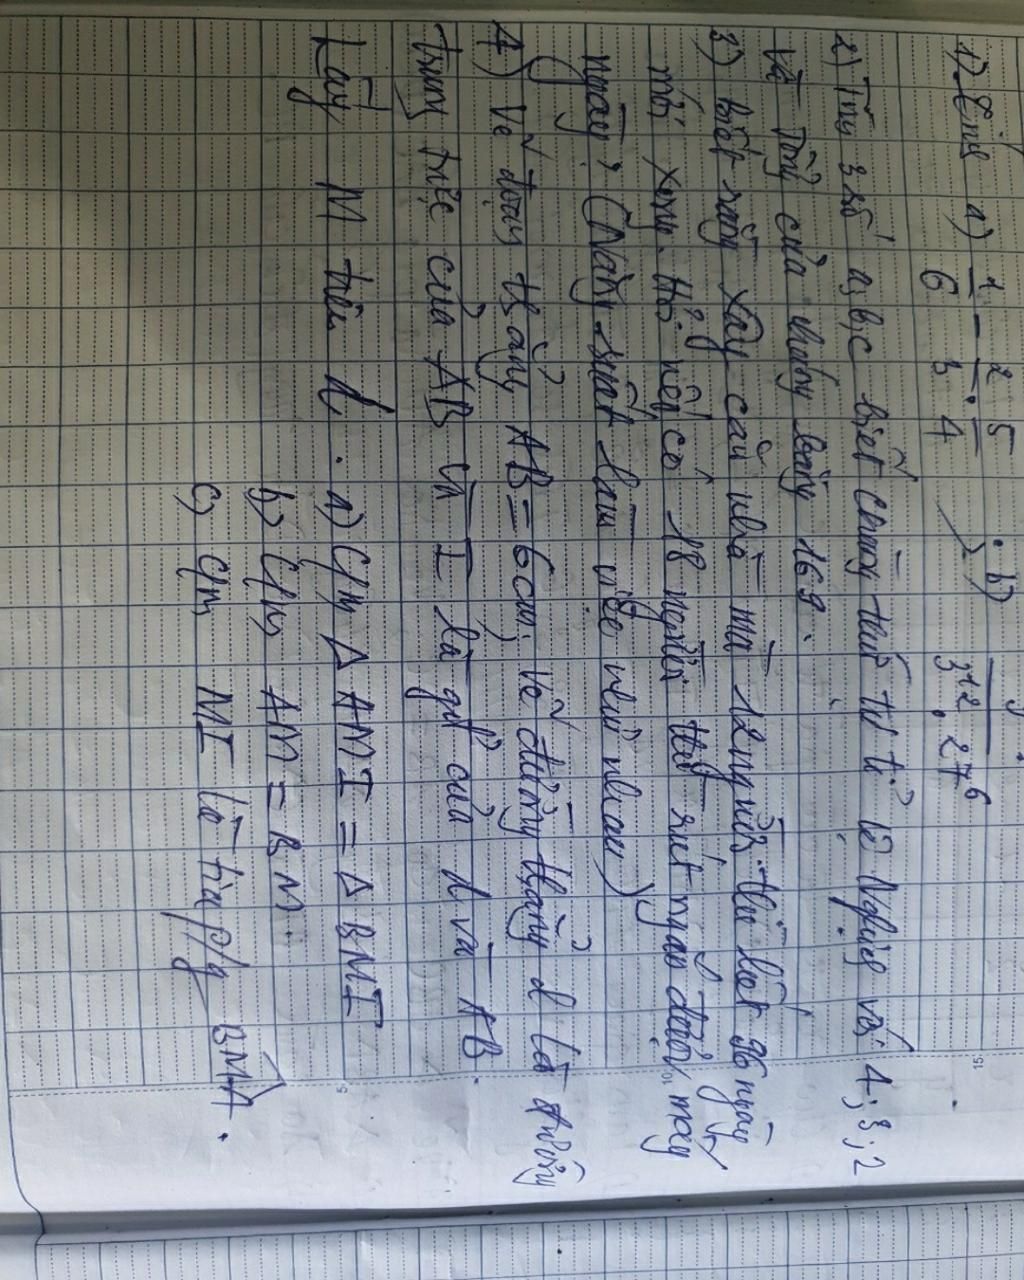 1) Tính a) 1/6 - 2/3 . 5/4 ; b) / 3^12 . 27^6
2) Tìm 3 số a, b, c biết chúng thứ tự tỉ lệ Nghịch với 4; 3; 2
Và Tổng của chúng bằng 169.
3) biết rằng xây căn nhà mà 12 người thì hết 96 ngày
mới xong. Hỏi nếu có 18 người thì rút ngắn được mấy
ngày? (Năng suất làm việc như nhau)
4) Vẽ đoạn thẳng AB = 6cm, Vẽ đường thẳng d là đường
trung trực của AB và I là gđ của d và AB.
Lấy M trên d. a) C/m Δ AMI = Δ BMI
b) C/m AM = BM.
c) C/m MI là tia p/g BMA.